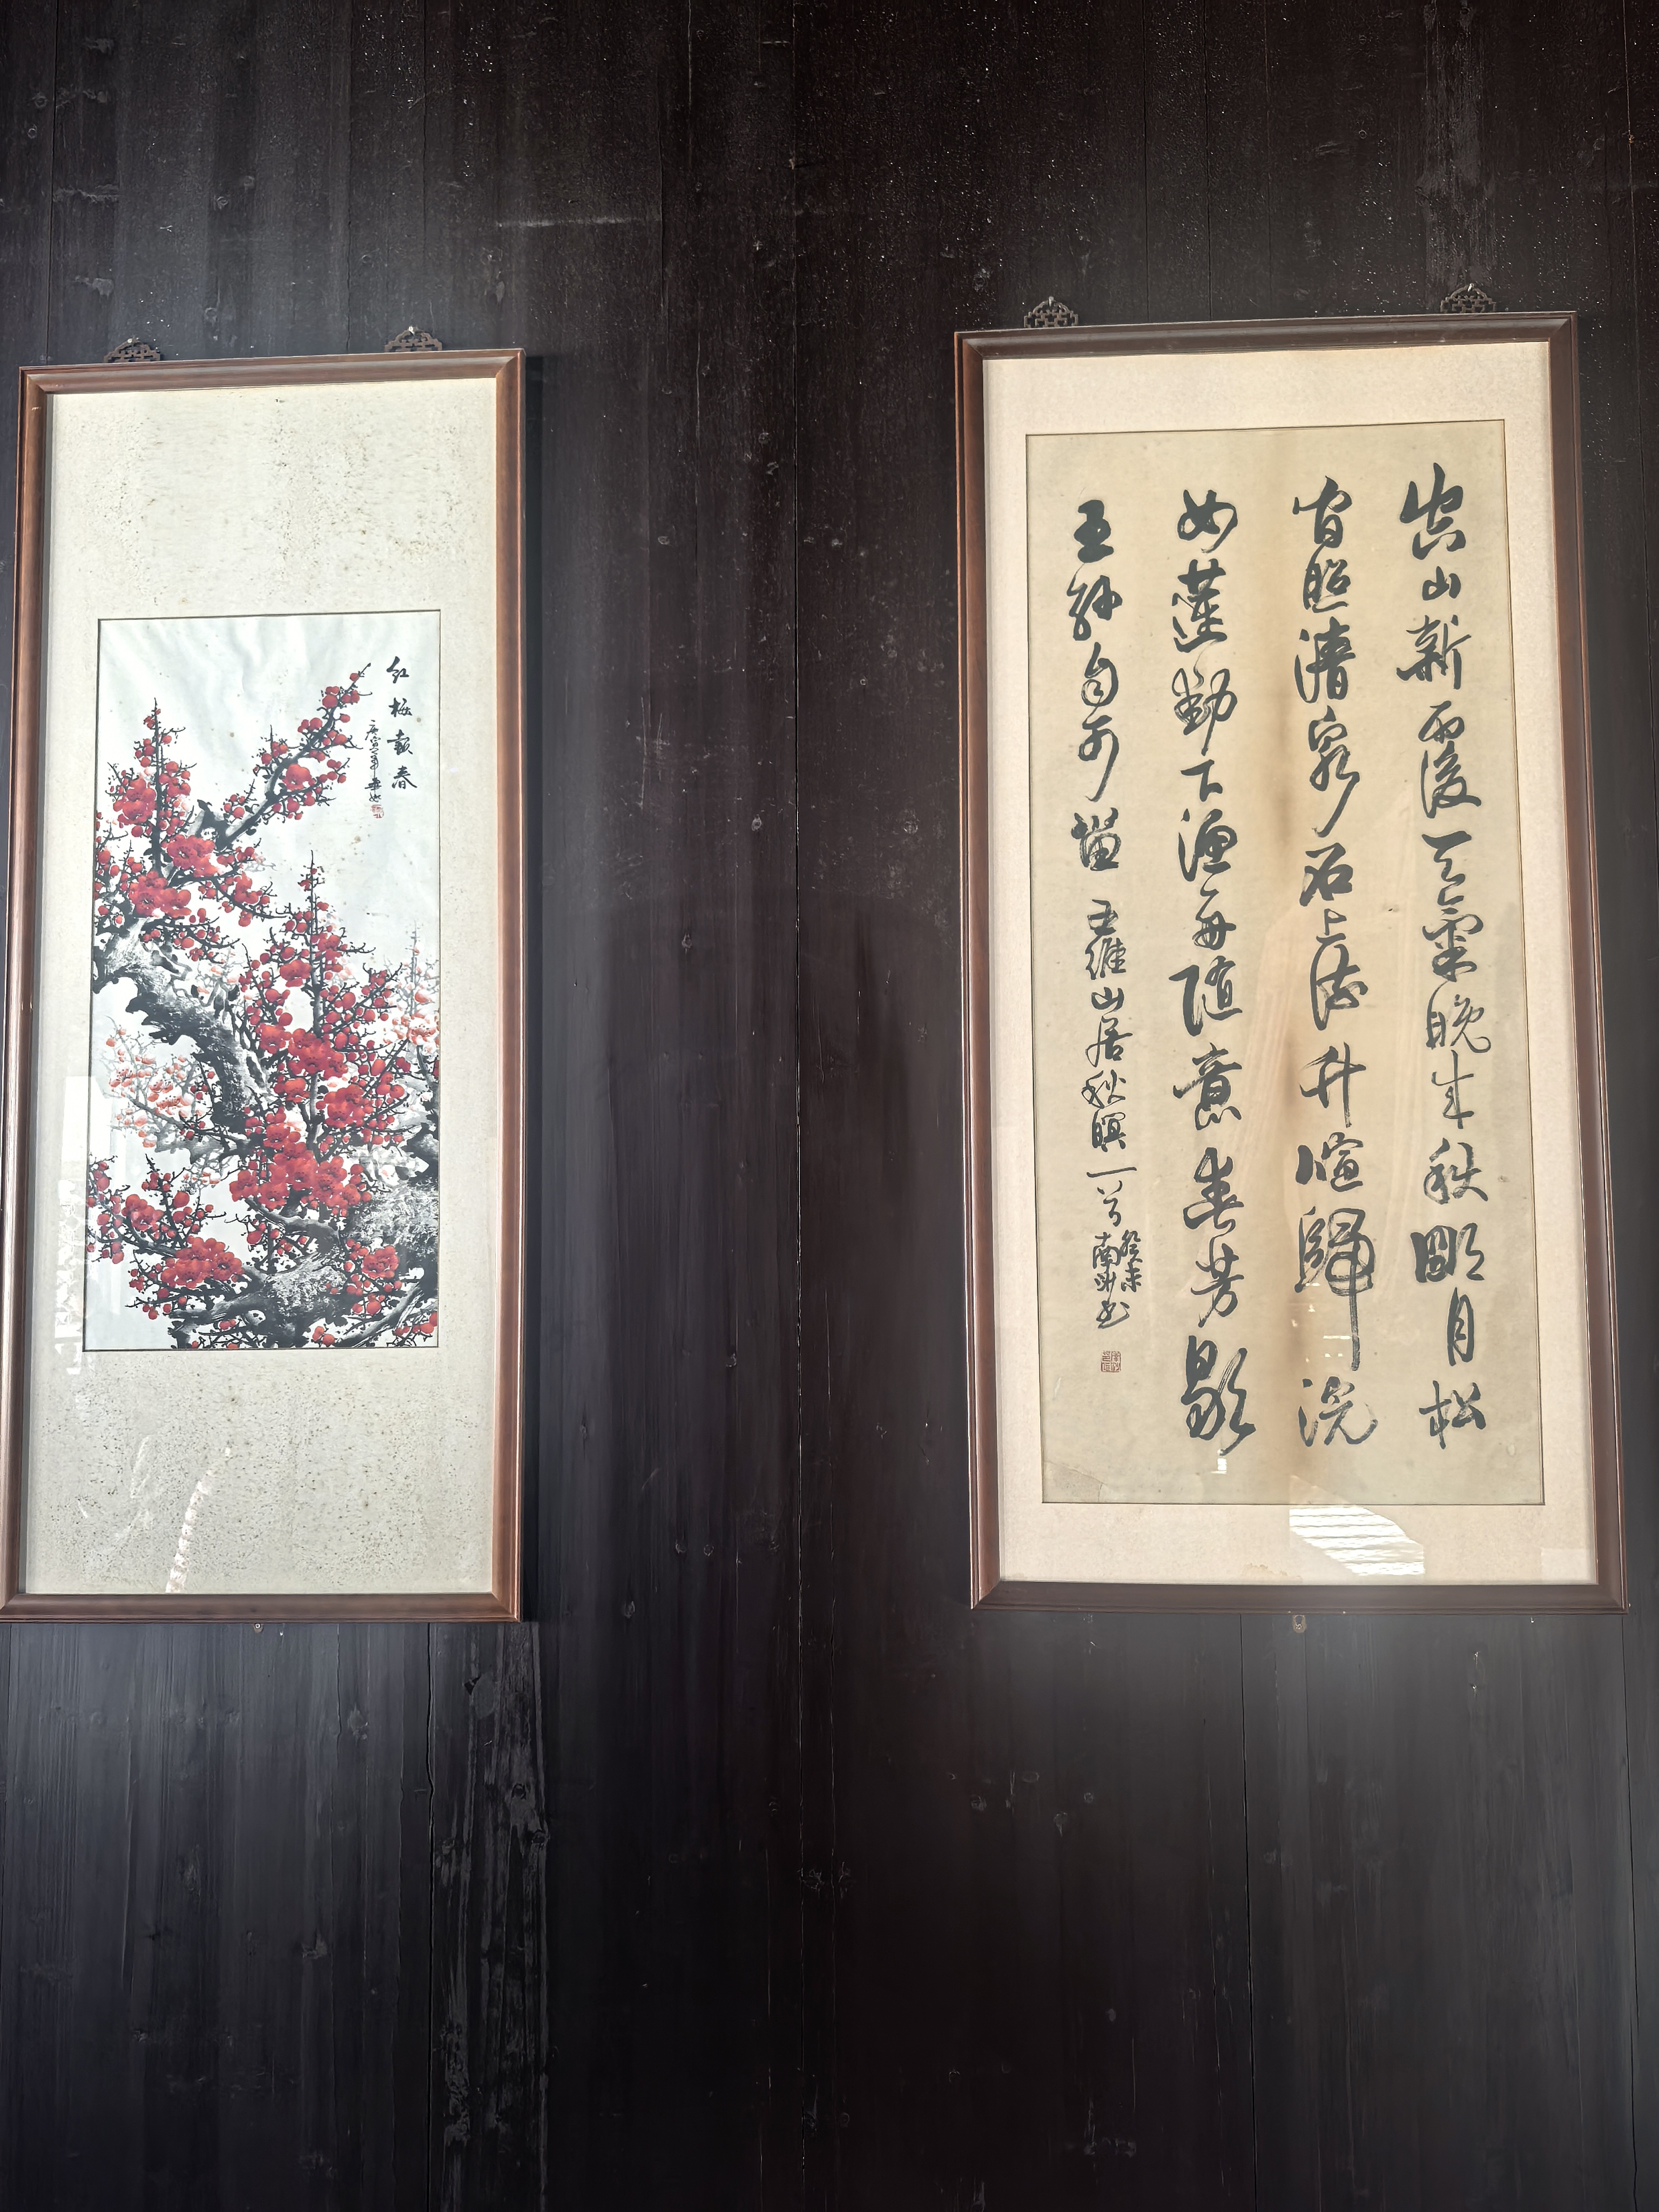 红梅報春
庚寅年
空山新雨後天氣晚来秋明月松
間照清泉石上流竹喧歸浣
女蓮動下漁舟隨意春芳歇
王孫自可留 王維山居秋暝一首
癸未
南州书